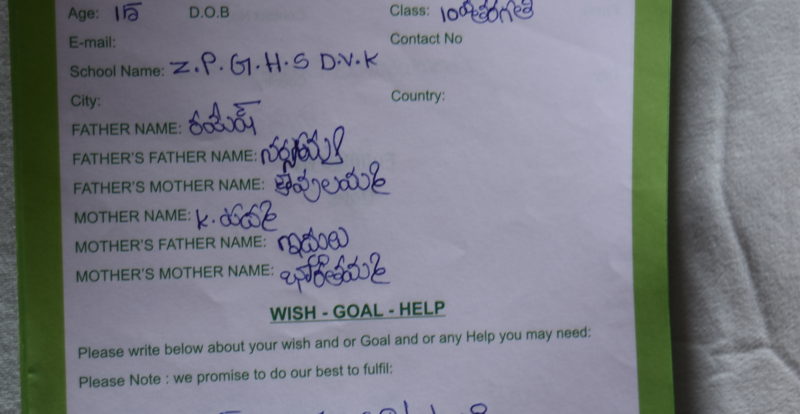 Age: 15 D.O.B Class: 10వ తరగతి
E-mail: Contact No
School Name: Z.P.G.H.S D.V.K
City: Country:
FATHER NAME: రమేష్
FATHER'S FATHER NAME: నర్సయ్య
FATHER'S MOTHER NAME:
MOTHER NAME: K.
MOTHER'S FATHER NAME:
MOTHER'S MOTHER NAME: భారతమ్మ
WISH - GOAL - HELP
Please write below about your wish and or Goal and or any Help you may need:
Please Note : we promise to do our best to fulfil: